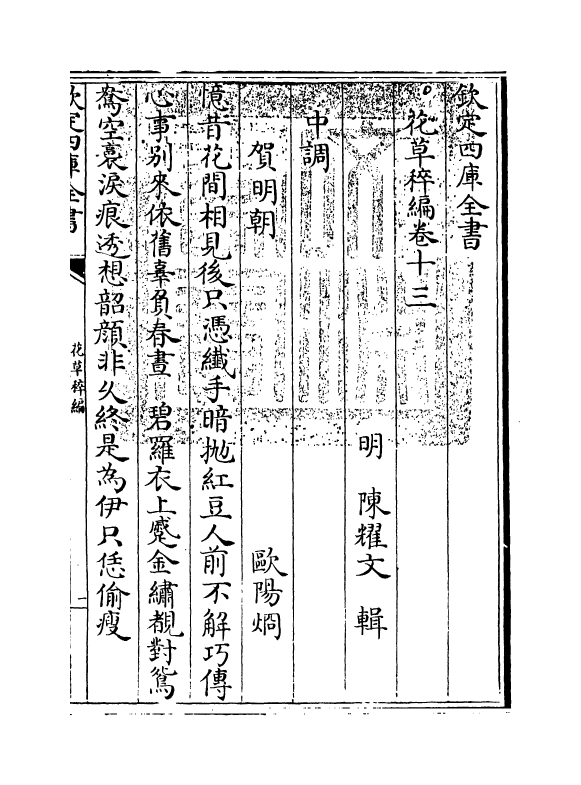 欽定四庫全書
花草稡編卷十三
明　陳耀文　輯
中調
賀明朝　歐陽烱
憶昔花間相見後只憑纖手暗抛紅豆人前不解巧傳
心事别來依舊辜負春晝　碧羅衣上蹙金繡覩對鴛
鴦空裛淚痕透想韶顔非久終是為伊只恁偷瘦
欽定四庫全書
花草稡編
一